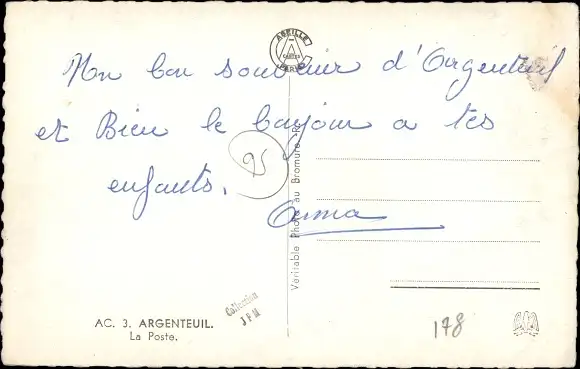 ABEILLE
A
CARTES
PARIS
Un bon souvenir d'Argenteuil
et Bien le bonjour a tes
enfants.
95
Anna
Véritable Photo au Bromure
AC. 3. ARGENTEUIL.
La Poste.
Collection
J P M
178